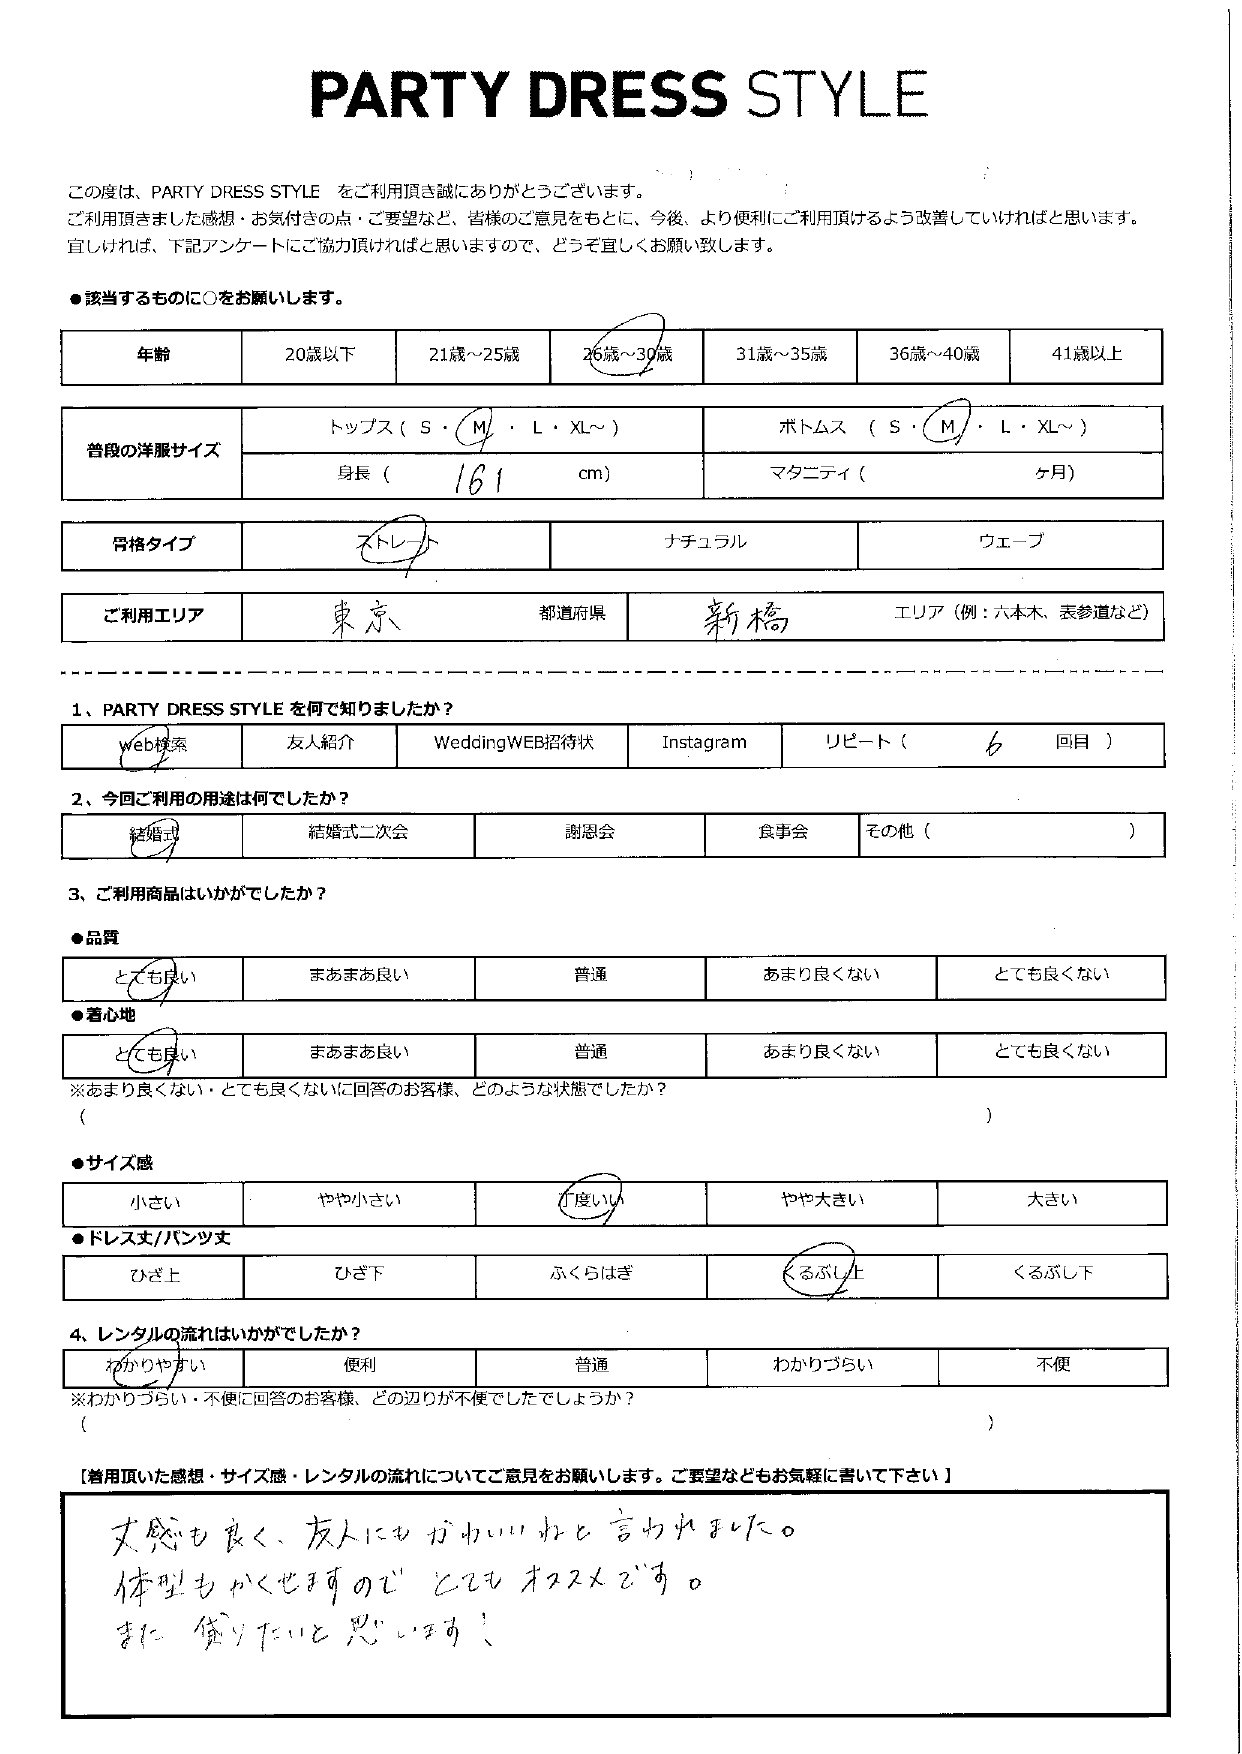 PARTY DRESS STYLE
この度は、PARTY DRESS STYLE　をご利用頂き誠にありがとうございます。
ご利用頂きました感想・お気付きの点・ご要望など、皆様のご意見をもとに、今後、より便利にご利用頂けるよう改善していければと思います。
宜しければ、下記アンケートにご協力頂ければと思いますので、どうぞ宜しくお願い致します。
●該当するものに○をお願いします。
年齢 20歳以下 21歳～25歳 26歳～30歳 31歳～35歳 36歳～40歳 41歳以上
普段の洋服サイズ トップス ( S ・ M ・ L ・ XL～ ) ボトムス ( S ・ M ・ L ・ XL～ )
身長 ( 161 cm) マタニティ ( ヶ月)
骨格タイプ ストレート ナチュラル ウェーブ
ご利用エリア 東京 都道府県 新橋 エリア（例：六本木、表参道など）
1、PARTY DRESS STYLE を何で知りましたか？
web検索 友人紹介 WeddingWEB招待状 Instagram リピート ( 6 回目 )
2、今回ご利用の用途は何でしたか？
結婚式 結婚式二次会 謝恩会 食事会 その他 ( )
3、ご利用商品はいかがでしたか？
●品質
とても良い まあまあ良い 普通 あまり良くない とても良くない
●着心地
とても良い まあまあ良い 普通 あまり良くない とても良くない
※あまり良くない・とても良くないに回答のお客様、どのような状態でしたか？
( )
●サイズ感
小さい やや小さい 丁度いい やや大きい 大きい
●ドレス丈/パンツ丈
ひざ上 ひざ下 ふくらはぎ くるぶし上 くるぶし下
4、レンタルの流れはいかがでしたか？
わかりやすい 便利 普通 わかりづらい 不便
※わかりづらい・不便に回答のお客様、どの辺りが不便でしたでしょうか？
( )
【着用頂いた感想・サイズ感・レンタルの流れについてご意見をお願いします。ご要望などもお気軽に書いて下さい 】
丈感も良く、友人にもかわいいねと言われました。
体型もかくせますのでとてもオススメです。
また 借りたいと思います！